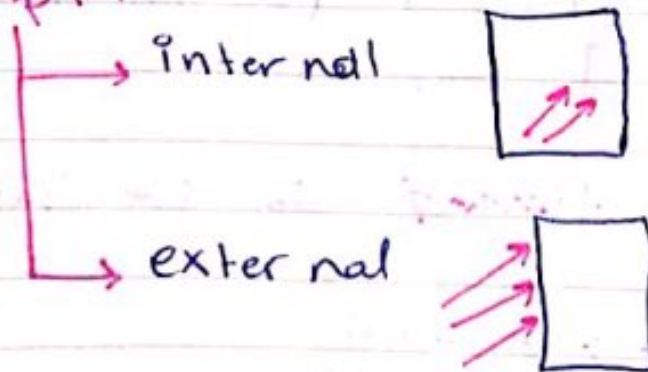 internal
external